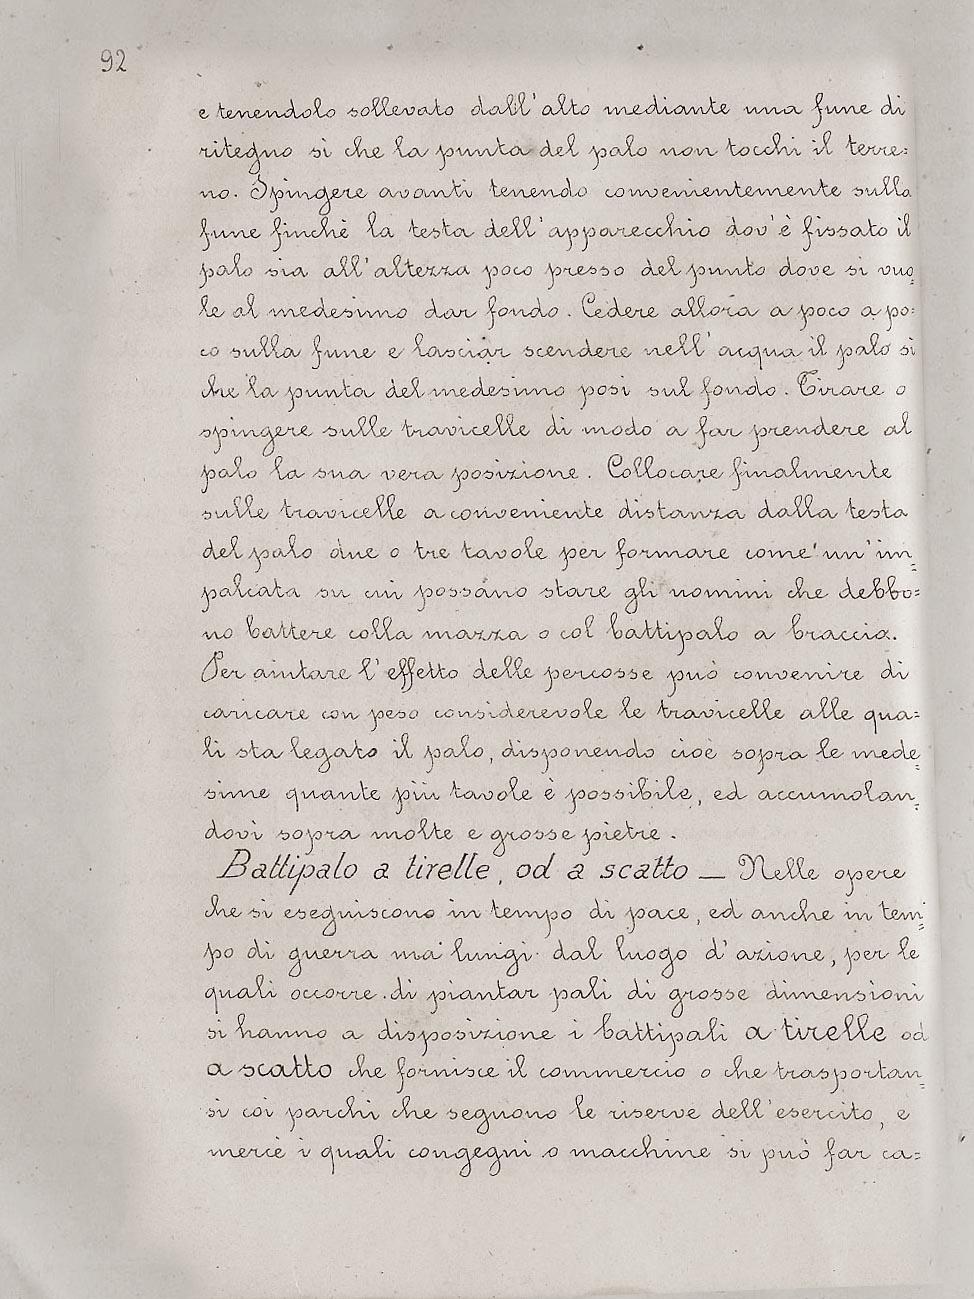 92
e tenendolo sollevato dall'alto mediante una fune di
ritegno sì che la punta del palo non tocchi il terre=
no. Spingere avanti tenendo convenientemente sulla
fune finchè la testa dell'apparecchio dov'è fissato il
palo sia all'altezza poco presso del punto dove si vuo=
le al medesimo dar fondo. Cedere allora a poco a po=
co sulla fune e lasciar scendere nell'acqua il palo sì
che la punta del medesimo posi sul fondo. Tirare o
spingere sulle travicelle di modo a far prendere al
palo la sua vera posizione. Collocare finalmente
sulle travicelle a conveniente distanza dalla testa
del palo due o tre tavole per formare come un'im=
palcata su cui possano stare gli uomini che debbo=
no battere colla mazza o col battipalo a braccia.
Per aiutare l'effetto delle percosse può convenire di
caricare con peso considerevole le travicelle alle qua=
li sta legato il palo, disponendo cioè sopra le mede=
sime quante più tavole è possibile, ed accumolan=
dovi sopra molte e grosse pietre.
Battipalo a tirelle, od a scatto — Nelle opere
che si eseguiscono in tempo di pace, ed anche in tem=
po di guerra ma lungi dal luogo d'azione, per le
quali occorre di piantar pali di grosse dimensioni
si hanno a disposizione i battipali a tirelle od
a scatto che fornisce il commercio o che trasportan=
si coi parchi che seguono le riserve dell'esercito, e
mercè i quali congegni o macchine si può far ca=